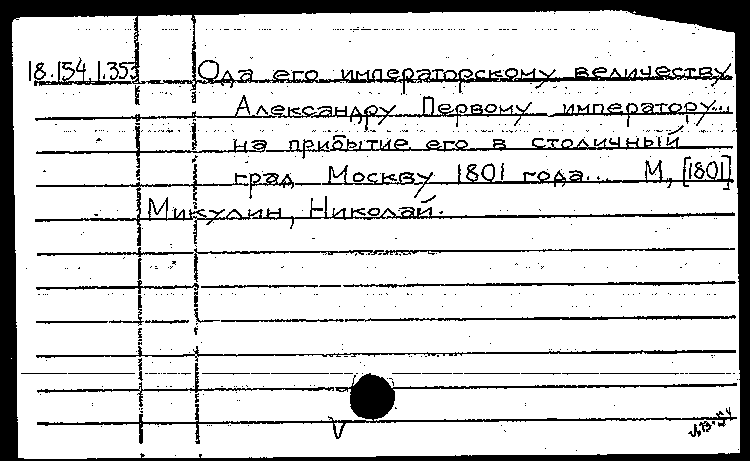 18.154.1.353 Ода его императорскому величеству
Александру Первому императору...
на прибытие его в столичный
град Москву 1801 года... М, [1801]
Микулин, Николай.
V